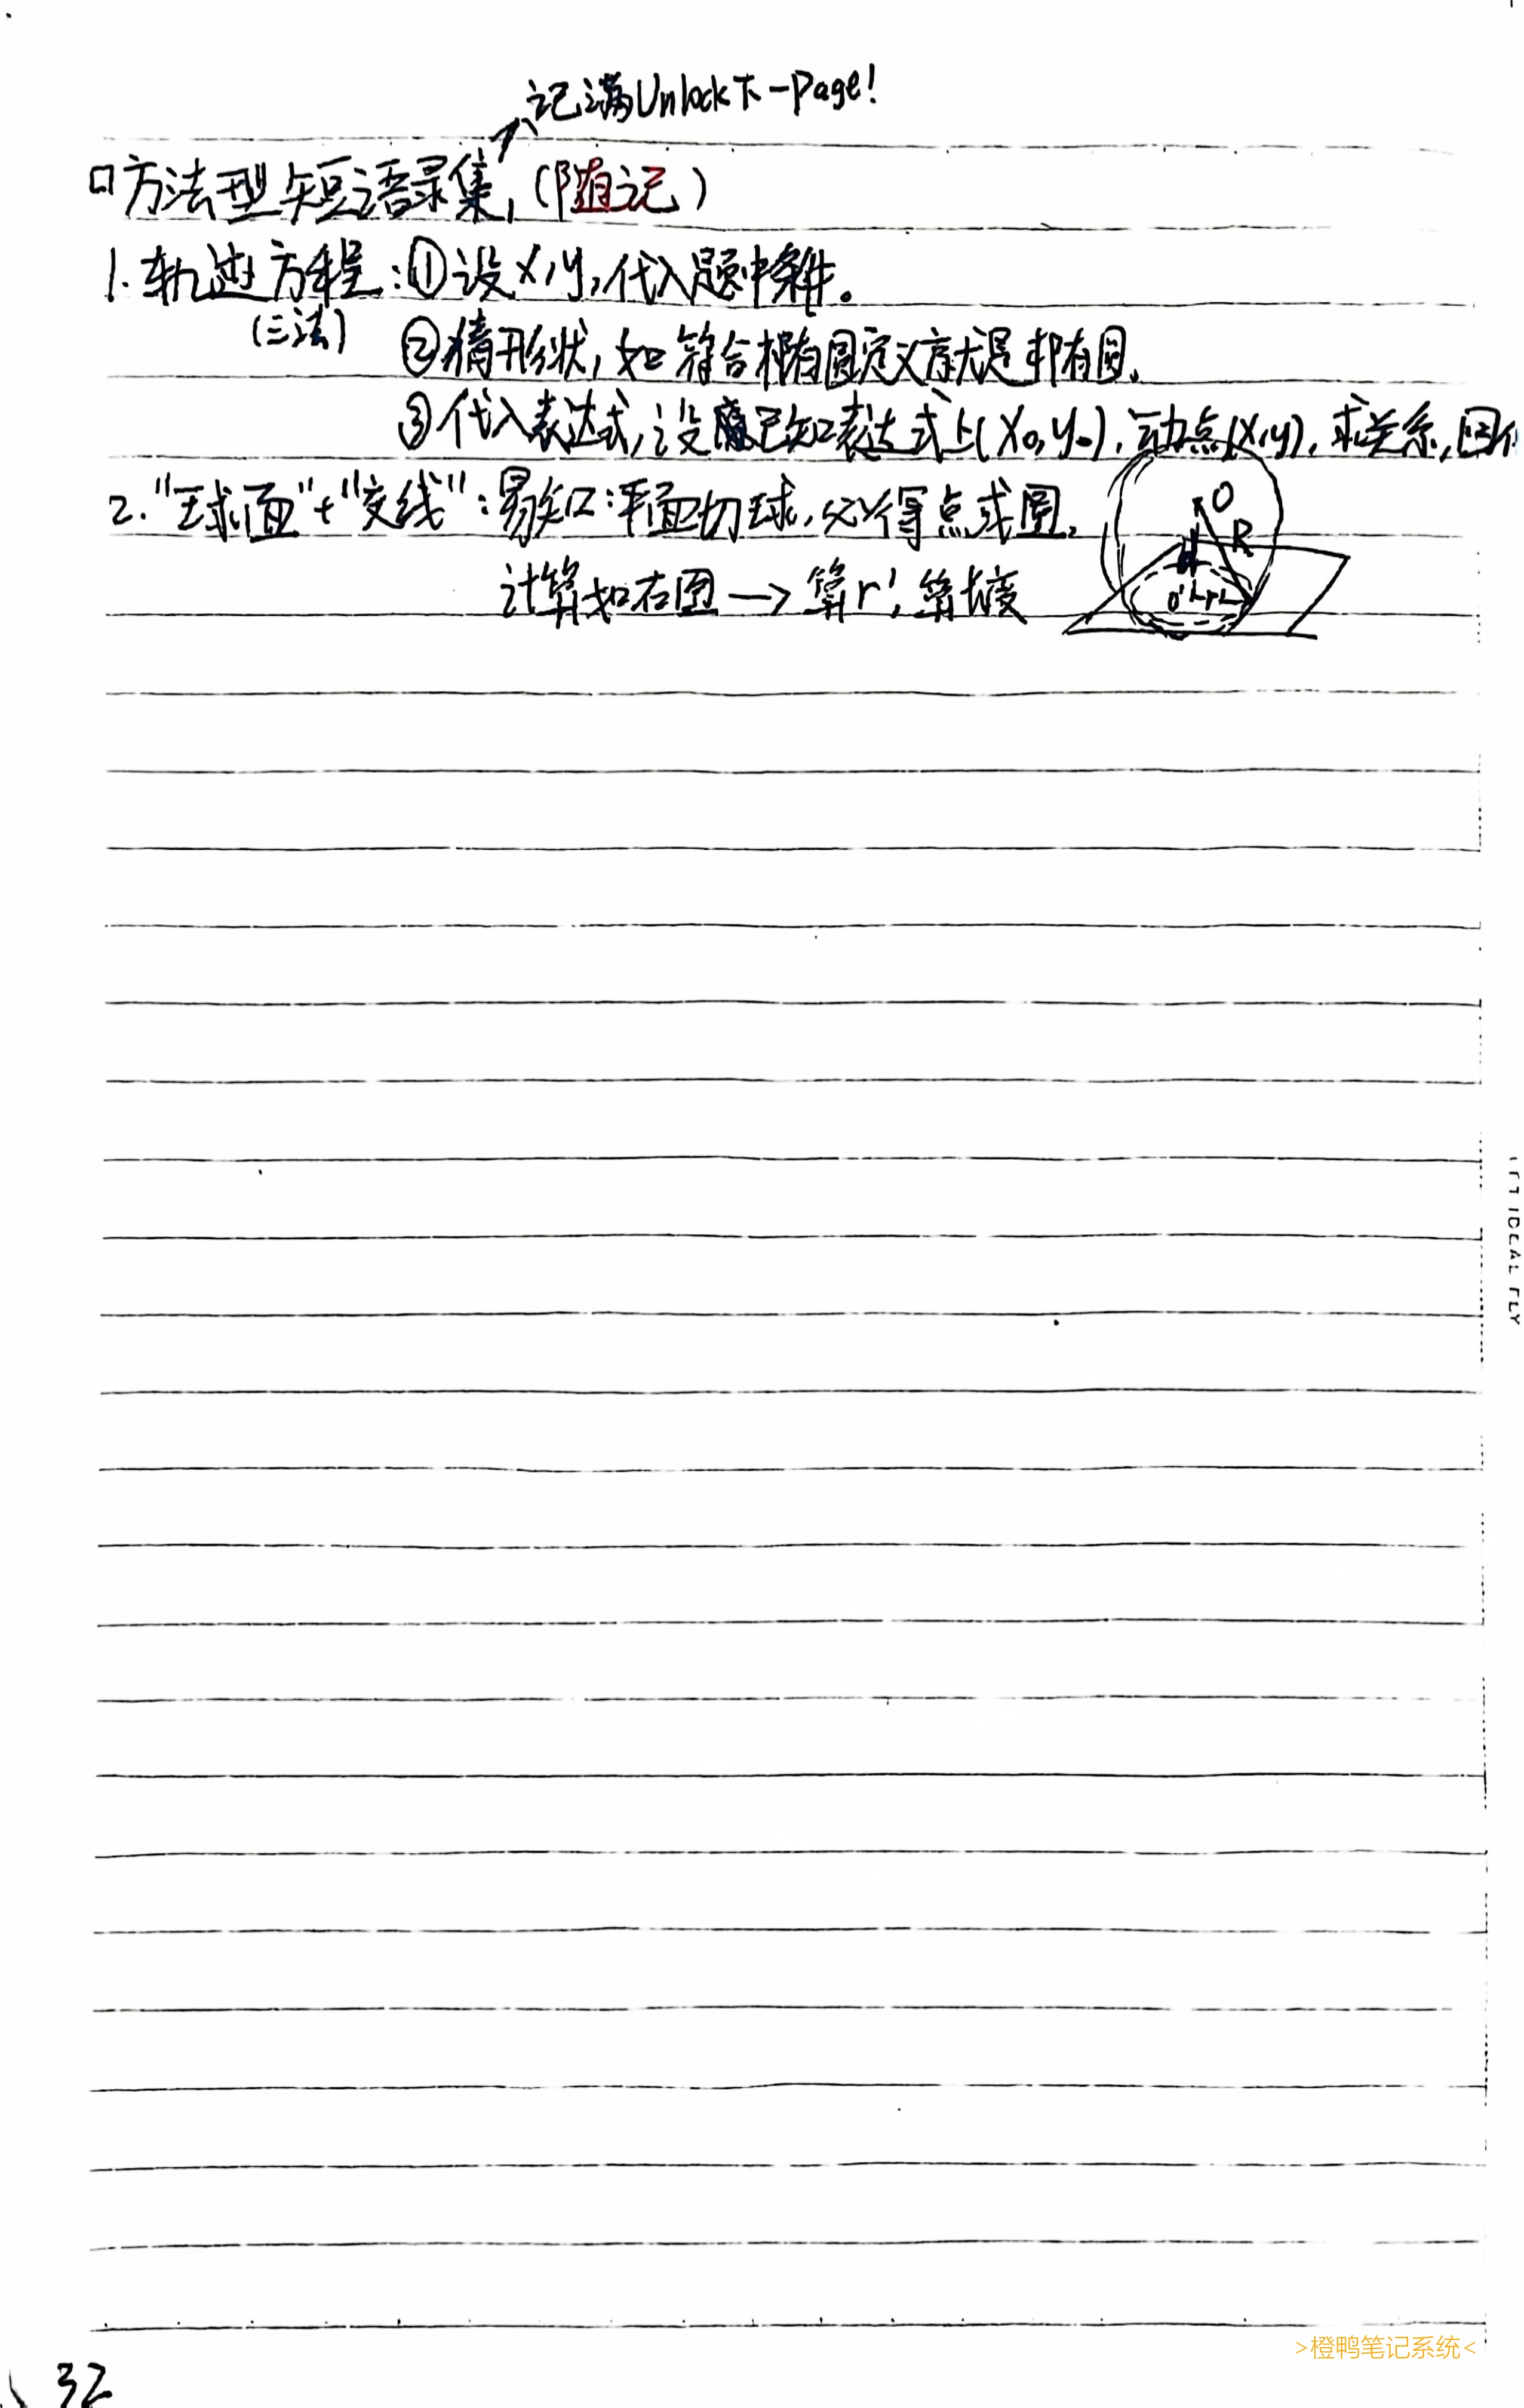 记满Unlock下一page!
口方法型短语录集,(随记)
1.轨迹方程:①设x,y,代入题中条件。
(三法)
②猜形状,如符合椭圆定义就是椭圆.
③代入表达式,设已知表达式上(x₀,y₀),动点(x,y),求关系,回代
2."球面"+"交线":易知:平面切球,必得点或圆.
计算如右图→算r',算长度
O
R
O'
r
32
>橙鸭笔记系统<